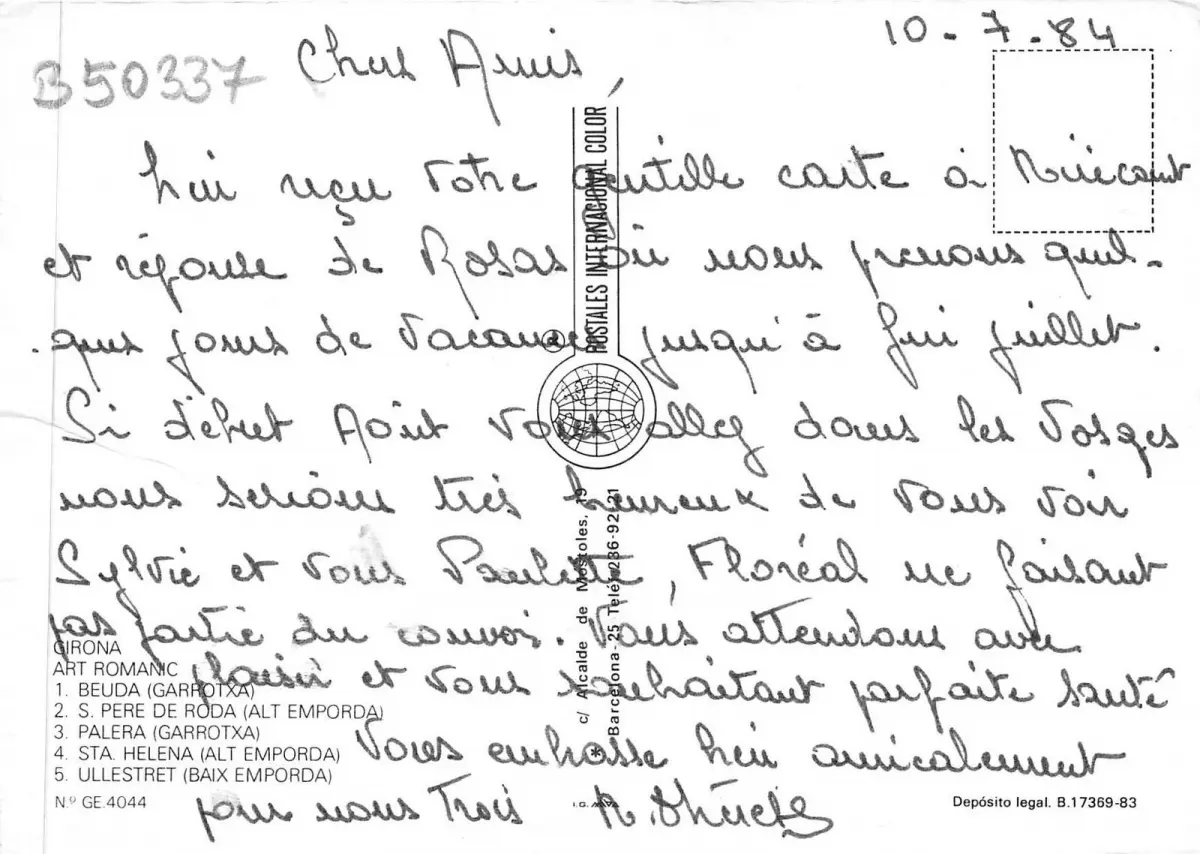 10-7-84
B50337
Chers Amis,
bien reçu votre gentille carte à Mirécourt
et réponse de Rosas où nous prenons quel-
ques jours de vacances jusqu'à fin juillet.
Si début Août vous allez dans les Vosges
nous serions très heureux de vous voir
Sylvie et vous Paulette, Floréal ne faisant
pas partie du convoi. Vous attendons avec
plaisir et vous souhaitant parfaite santé
Vous embrasse bien amicalement
pour nous Trois
POSTALES INTERNACIONAL COLOR
c/ Alcalde de Mostoles, 19
Barcelona-25 Teléf. 236-92-21
GIRONA
ART ROMANIC
1. BEUDA (GARROTXA)
2. S. PERE DE RODA (ALT EMPORDA)
3. PALERA (GARROTXA)
4. STA. HELENA (ALT EMPORDA)
5. ULLESTRET (BAIX EMPORDA)
N.º GE.4044
Depósito legal. B.17369-83